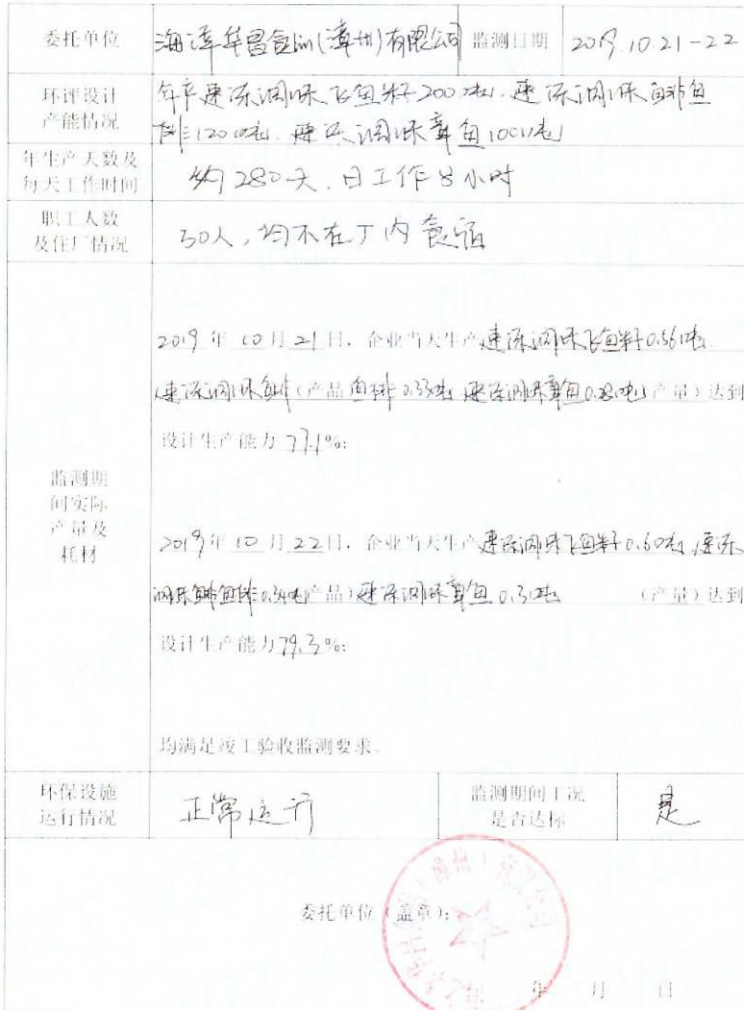 委托单位 海泽华昌食品(漳州)有限公司 监测日期 2019.10.21-22
环评设计
产能情况
年产速冻调味飞鱼籽200吨、速冻调味
120吨、速冻调味章鱼100吨
年生产天数及
每天工作时间
约280天、日工作8小时
职工人数
及住厂情况
50人,均不在厂内食宿
监测期
间实际
产量及
耗材
2019年10月21日,企业当天生产速冻调味飞鱼籽0.56吨
速冻调味(产品鱼排0.33吨 速冻调味章鱼0.28吨)产量)达到
设计生产能力77.1%;
2019年10月22日,企业当天生产速冻调味飞鱼籽0.60吨,速冻
调味鱼排0.34吨(产品)速冻调味章鱼0.31吨 (产量)达到
设计生产能力79.3%;
均满足竣工验收监测要求。
环保设施
运行情况
正常运行
监测期间工况
是否达标
是
委托单位(盖章):
年 月 日
WZT